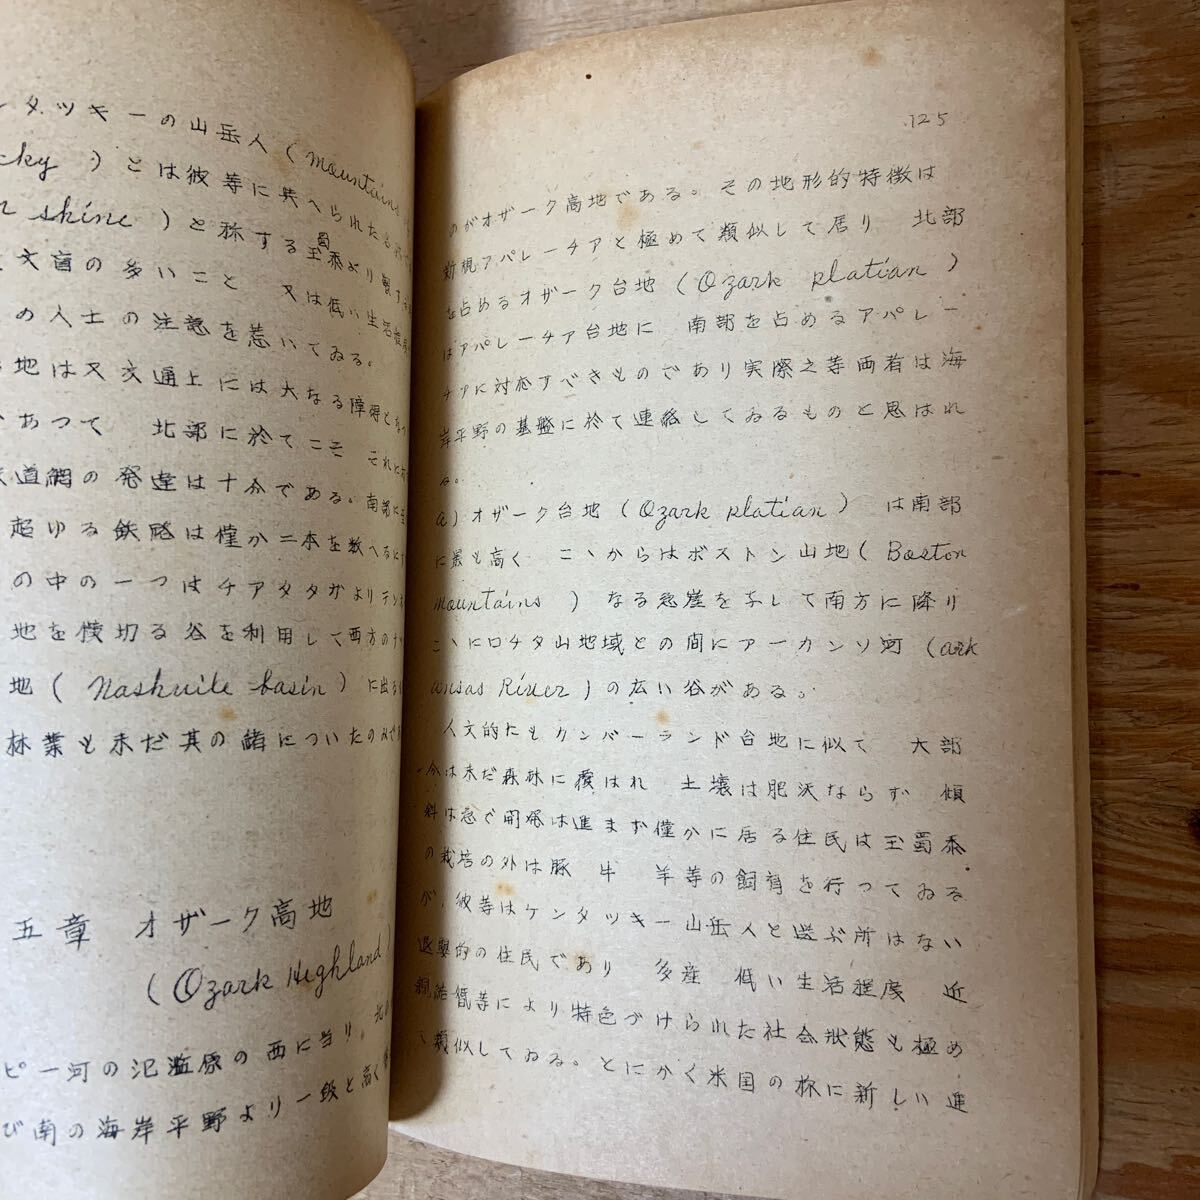 ンタツキーの山岳人（mountains
cky ）とは彼等に與へられた
n shine ）と称する玉蜀黍より製する
文盲の多いこと 又は低い生活程度
の人士の注意を惹いてゐる。
地は又交通上には大なる障得となつ
あつて 北部に於てこそ これに
道網の発達は十分である。南部に
超ゆる鉄路は僅か二本を数へるに
の中の一つはチアタヌガよりテン
地を横切る谷を利用して西方のナツ
地（Nashuile basin）に出る
林業も未だ其の緒についたのみで
五章 オザーク高地
（Ozark Highland）
ピー河の氾濫原の西に当り、北
び南の海岸平野より一段と高く
125
のがオザーク高地である。その地形的特徴は
新規アパレーチアと極めて類似して居り 北部
を占めるオザーク台地（Ozark platian）
はアパレーチア台地に 南部を占めるアパレー
チアに対応すべきものであり実際之等両者は海
岸平野の基盤に於て連絡してゐるものと思はれ
る。
a）オザーク台地（Ozark platian）は南部
に最も高く こゝからはボストン山地（Boston
mountains ）なる急崖を予して南方に降り
こゝにロチタ山地域との間にアーカンソ河（ark
ansas River）の広い谷がある。
人文的にもカンバーランド台地に似て 大部
分は未だ森林に覆はれ 土壌は肥沃ならず 傾
斜は急で開発は進まず僅かに居る住民は玉蜀黍
の栽培の外は豚 牛 羊等の飼育を行つてゐる
が、彼等はケンタツキー山岳人と選ぶ所はない
退嬰的の住民であり 多産 低い生活程度 近
親結婚等により特色づけられた社会状態も極め
て類似してゐる。とにかく米国の林に新しい進